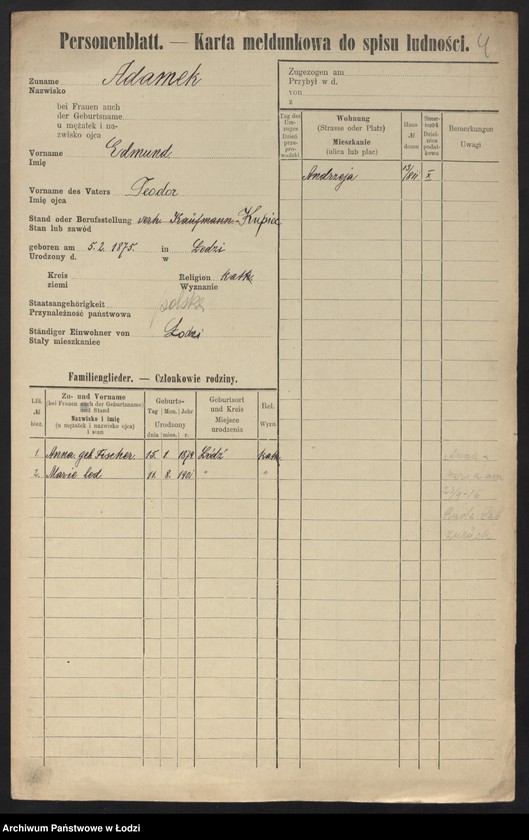 Personenblatt. — Karta meldunkowa do spisu ludności. 4
Zuname Adamek
Nazwisko
bei Frauen auch
der Geburtsname
u mężatek i na-
zwisko ojca
Vorname Edmund
Imię
Vorname des Vaters Teodor
Imię ojca
Stand oder Berufsstellung verh. Kaufmann Kupiec
Stan lub zawód
geboren am 5. 2. 1875. in Łodzi
Urodzony d. w
Kreis
ziemi
Religion kath.
Wyznanie
Staatsangehörigkeit polska
Przynależność państwowa
Ständiger Einwohner von Łodzi
Stały mieszkaniec
Familienglieder. — Członkowie rodziny.
Lfd.
№
bież.
Zu- und Vorname
(bei Frauen auch der Geburtsname)
und Stand
Nazwisko i imię
(u mężatek i nazwisko ojca)
i stan
Geburts-
Tag Mon. Jahr
Urodzony
dnia mies. r.
Geburtsort
und Kreis
Miejsce
urodzenia
Rel.
Wyzn.
1. Anna geb. Fischer 15. 1. 1879 Łódź kath.
2. Marie led 11. 8. 1901 " "
Zugezogen am
Przybył w d.
von
z
Tag des
Um-
zuges
Dzień
prze-
prowadzki
Wohnung
(Strasse oder Platz)
Mieszkanie
(ulica lub plac)
Haus
№
domu
Steuer-
bezirk
Dziel-
nica
podat-
kowa
Bemerkungen
Uwagi
Andrzeja 13/VII X
Anna u
zurück
Archiwum Państwowe w Łodzi